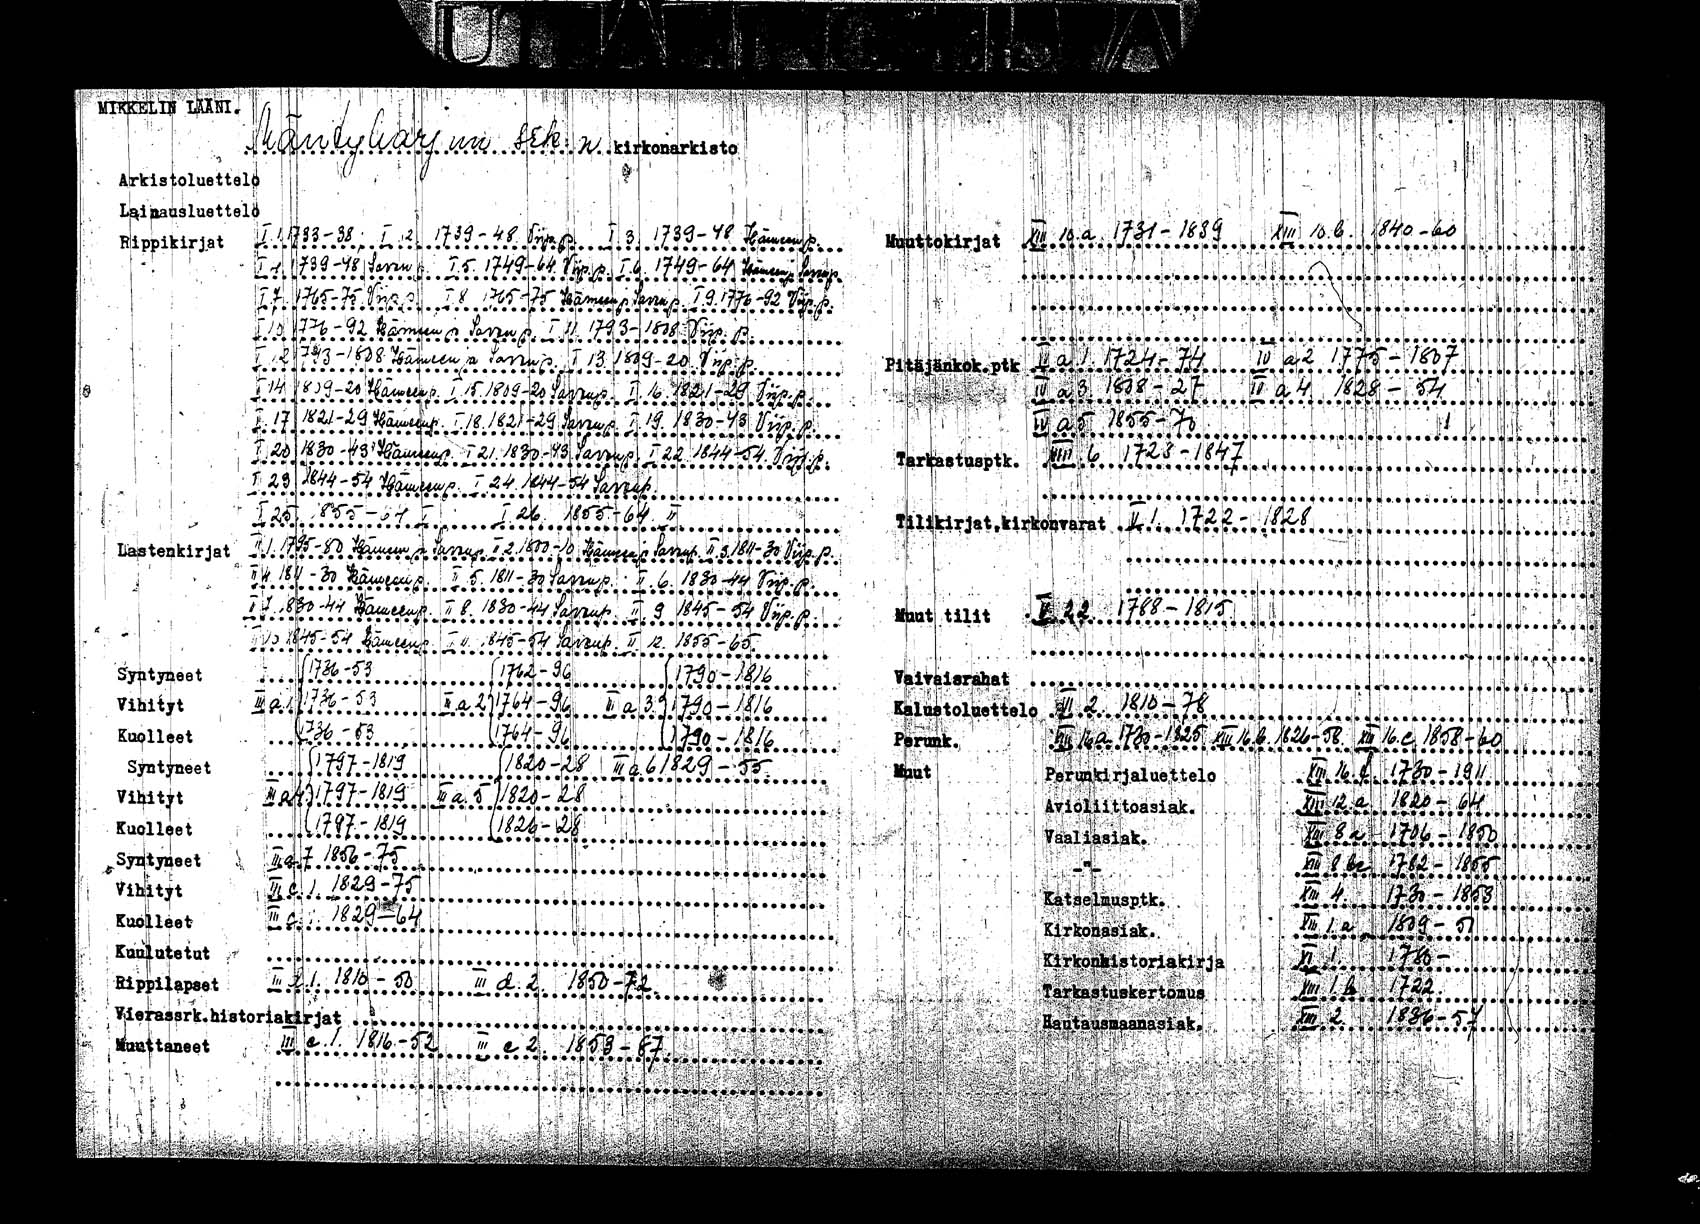 MIKKELIN LÄÄNI.
Mäntyharjun srk:n kirkonarkisto
Arkistoluettelo
Lainausluettelo
Rippikirjat I 1. 1733-38, I 2. 1739-48 Viip.p. I 3. 1739-48 Hämeenp.
I 4. 1739-48 Savonp. I 5. 1749-64 Viip.p. I 6. 1749-64 Hämeenp. Savonp.
I 7. 1765-75 Viip.p. I 8. 1765-75 Hämeenp. Savonp. I 9. 1776-92 Viip.p.
I 10 1776-92 Hämeenp. Savonp. I 11. 1793-1808 Viip.p.
I 12 1793-1808 Hämeenp. Savonp. I 13. 1809-20 Viip.p.
I 14 1809-20 Hämeenp. I 15. 1809-20 Savonp. I 16. 1821-29 Viip.p.
I 17 1821-29 Hämeenp. I 18. 1821-29 Savonp. I 19. 1830-43 Viip.p.
I 20 1830-43 Hämeenp. I 21. 1830-43 Savonp. I 22. 1844-54 Viip.p.
I 23 1844-54 Hämeenp. I 24. 1844-54 Savonp.
I 25. 1855-64 I I 26. 1855-64 II
Lastenkirjat II 1. 1795-80 Hämeenp. Savonp. II 2. 1800-10 Hämeenp. Savonp. II 3. 1811-30 Viip.p.
II 4. 1811-30 Hämeenp. II 5. 1811-30 Savonp. II 6. 1830-44 Viip.p.
II 7. 1830-44 Hämeenp. II 8. 1830-44 Savonp. II 9 1845-54 Viip.p.
II 10. 1845-54 Hämeenp. II 11. 1845-54 Savonp. II 12. 1855-65.
Syntyneet 1736-53 1762-96 1790-1816
Vihityt III a 1. 1736-53 III a 2 1764-96 III a 3. 1790-1816
Kuolleet 1736-53 1764-96 1790-1816
Syntyneet 1797-1819 1820-28 III a 6 1829-55.
Vihityt III a 4 1797-1819 III a. 5 1820-28
Kuolleet 1797-1819 1826-28
Syntyneet III a. 7 1856-75
Vihityt III c. 1. 1829-75
Kuolleet III c. 1829-64
Kuulutetut
Rippilapset III d. 1. 1810-50 III d. 2. 1850-72.
Vierassrk.historiakirjat
Muuttaneet III e. 1. 1816-52 III e 2. 1853-87.
Muuttokirjat XIII 10.a. 1731-1839 XIII 10.b. 1840-60
Pitäjänkok.ptk IV a 1. 1724-74 IV a 2 1775-1807
IV a 3. 1808-27 IV a 4 1828-54
IV a 5 1855-70
Tarkastusptk. VIII. 6 1723-1847
Tilikirjat,kirkonvarat V 1. 1722-1828
Muut tilit V 22. 1788-1815
Vaivaisrahat
Kalustoluettelo VI 2. 1810-78
Perunk. XIII 16.a. 1730-1825 XIII 16.b. 1826-58. XIII 16.c 1858-60
Muut Perunkirjaluettelo XIII. 16. d. 1730-1911
Avioliittoasiak. XIII 12.a. 1820-64
Vaaliasiak. XIII 8a 1706-1850
-"- XIII 8 bc 1782-1855
Katselmusptk. XIII 4. 1730-1853
Kirkonasiak. XIII 1.a 1809-51
Kirkonhistoriakirja XI 1. 1780-
Tarkastuskertomus XIII 1.b 1722.
Hautausmaanasiak. XIII. 2. 1836-57